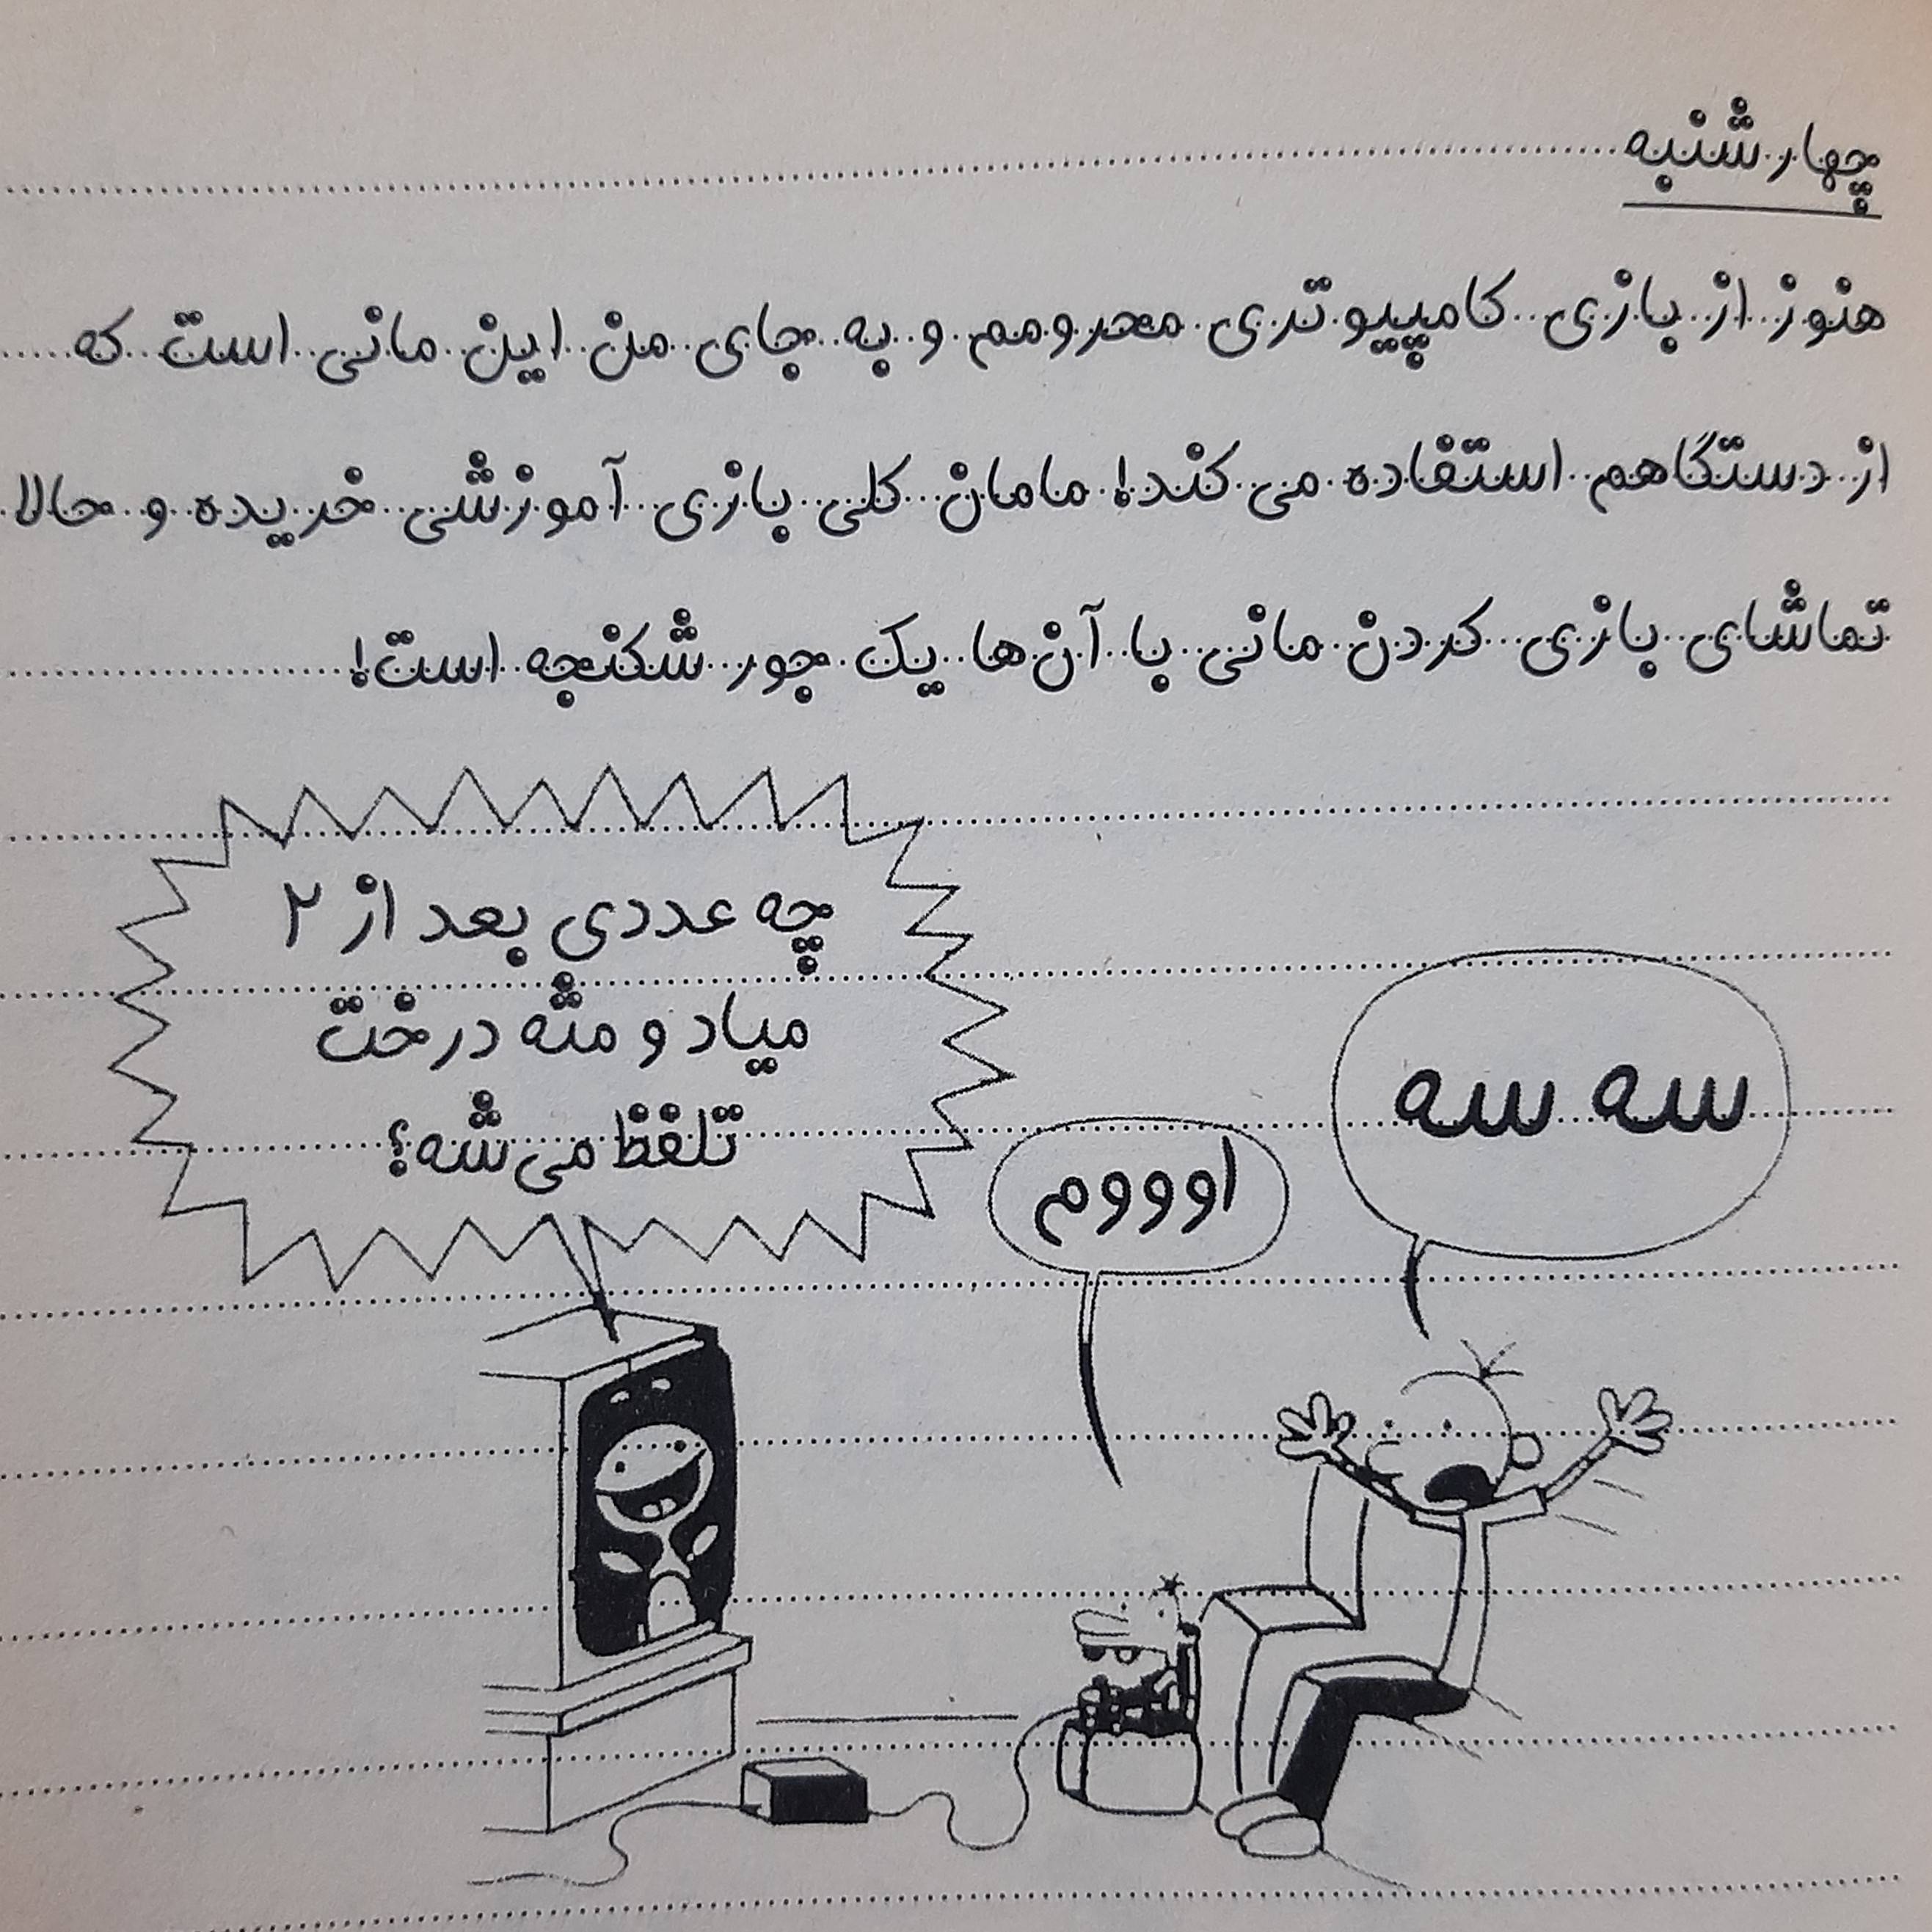 چهارشنبه
هنوز از بازی کامپیوتری محرومم و به جای من این مانی است که
از دستگاهم استفاده می‌کند! مامان کلی بازی آموزشی خریده و حالا
تماشای بازی کردن مانی با آن‌ها یک جور شکنجه است!
چه عددی بعد از ۲
میاد و مثه درخت
تلفظ می‌شه؟
اوووم
سه سه